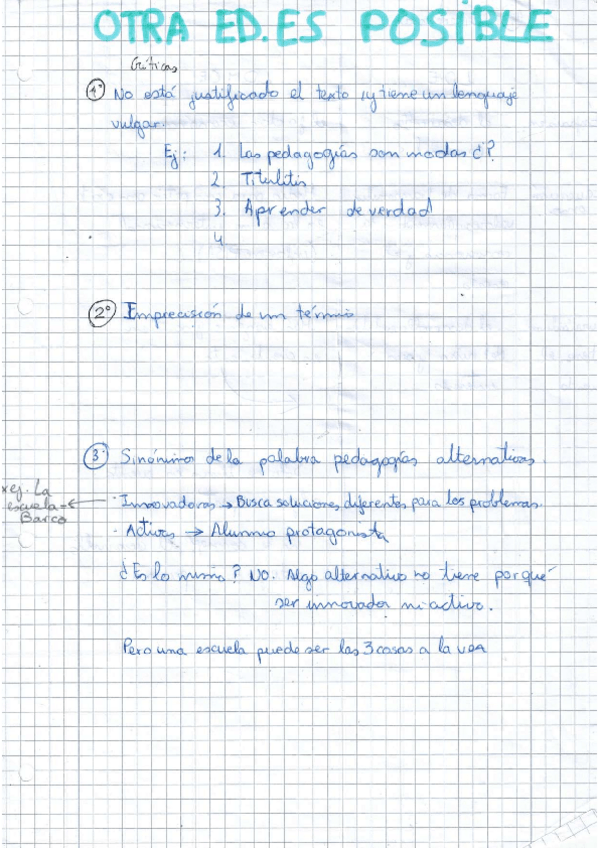 OTRA ED. ES POSIBLE
Críticas
1º No está justificado el texto y tiene un lenguaje
vulgar.
Ej: 1. Las pedagogías son modas ¿?
2. Titulitis
3. Aprender de verdad
4
2º Imprecisión de un término
3. Sinónimo de la palabra pedagogías alternativas.
xej. La
escuela
Barco
· Innovadoras → Busca soluciones diferentes para los problemas.
- Activas → Alumno protagonista
¿Es lo mismo? NO. Algo alternativo no tiene porqué
ser innovador ni activo.
Pero una escuela puede ser las 3 cosas a la vez